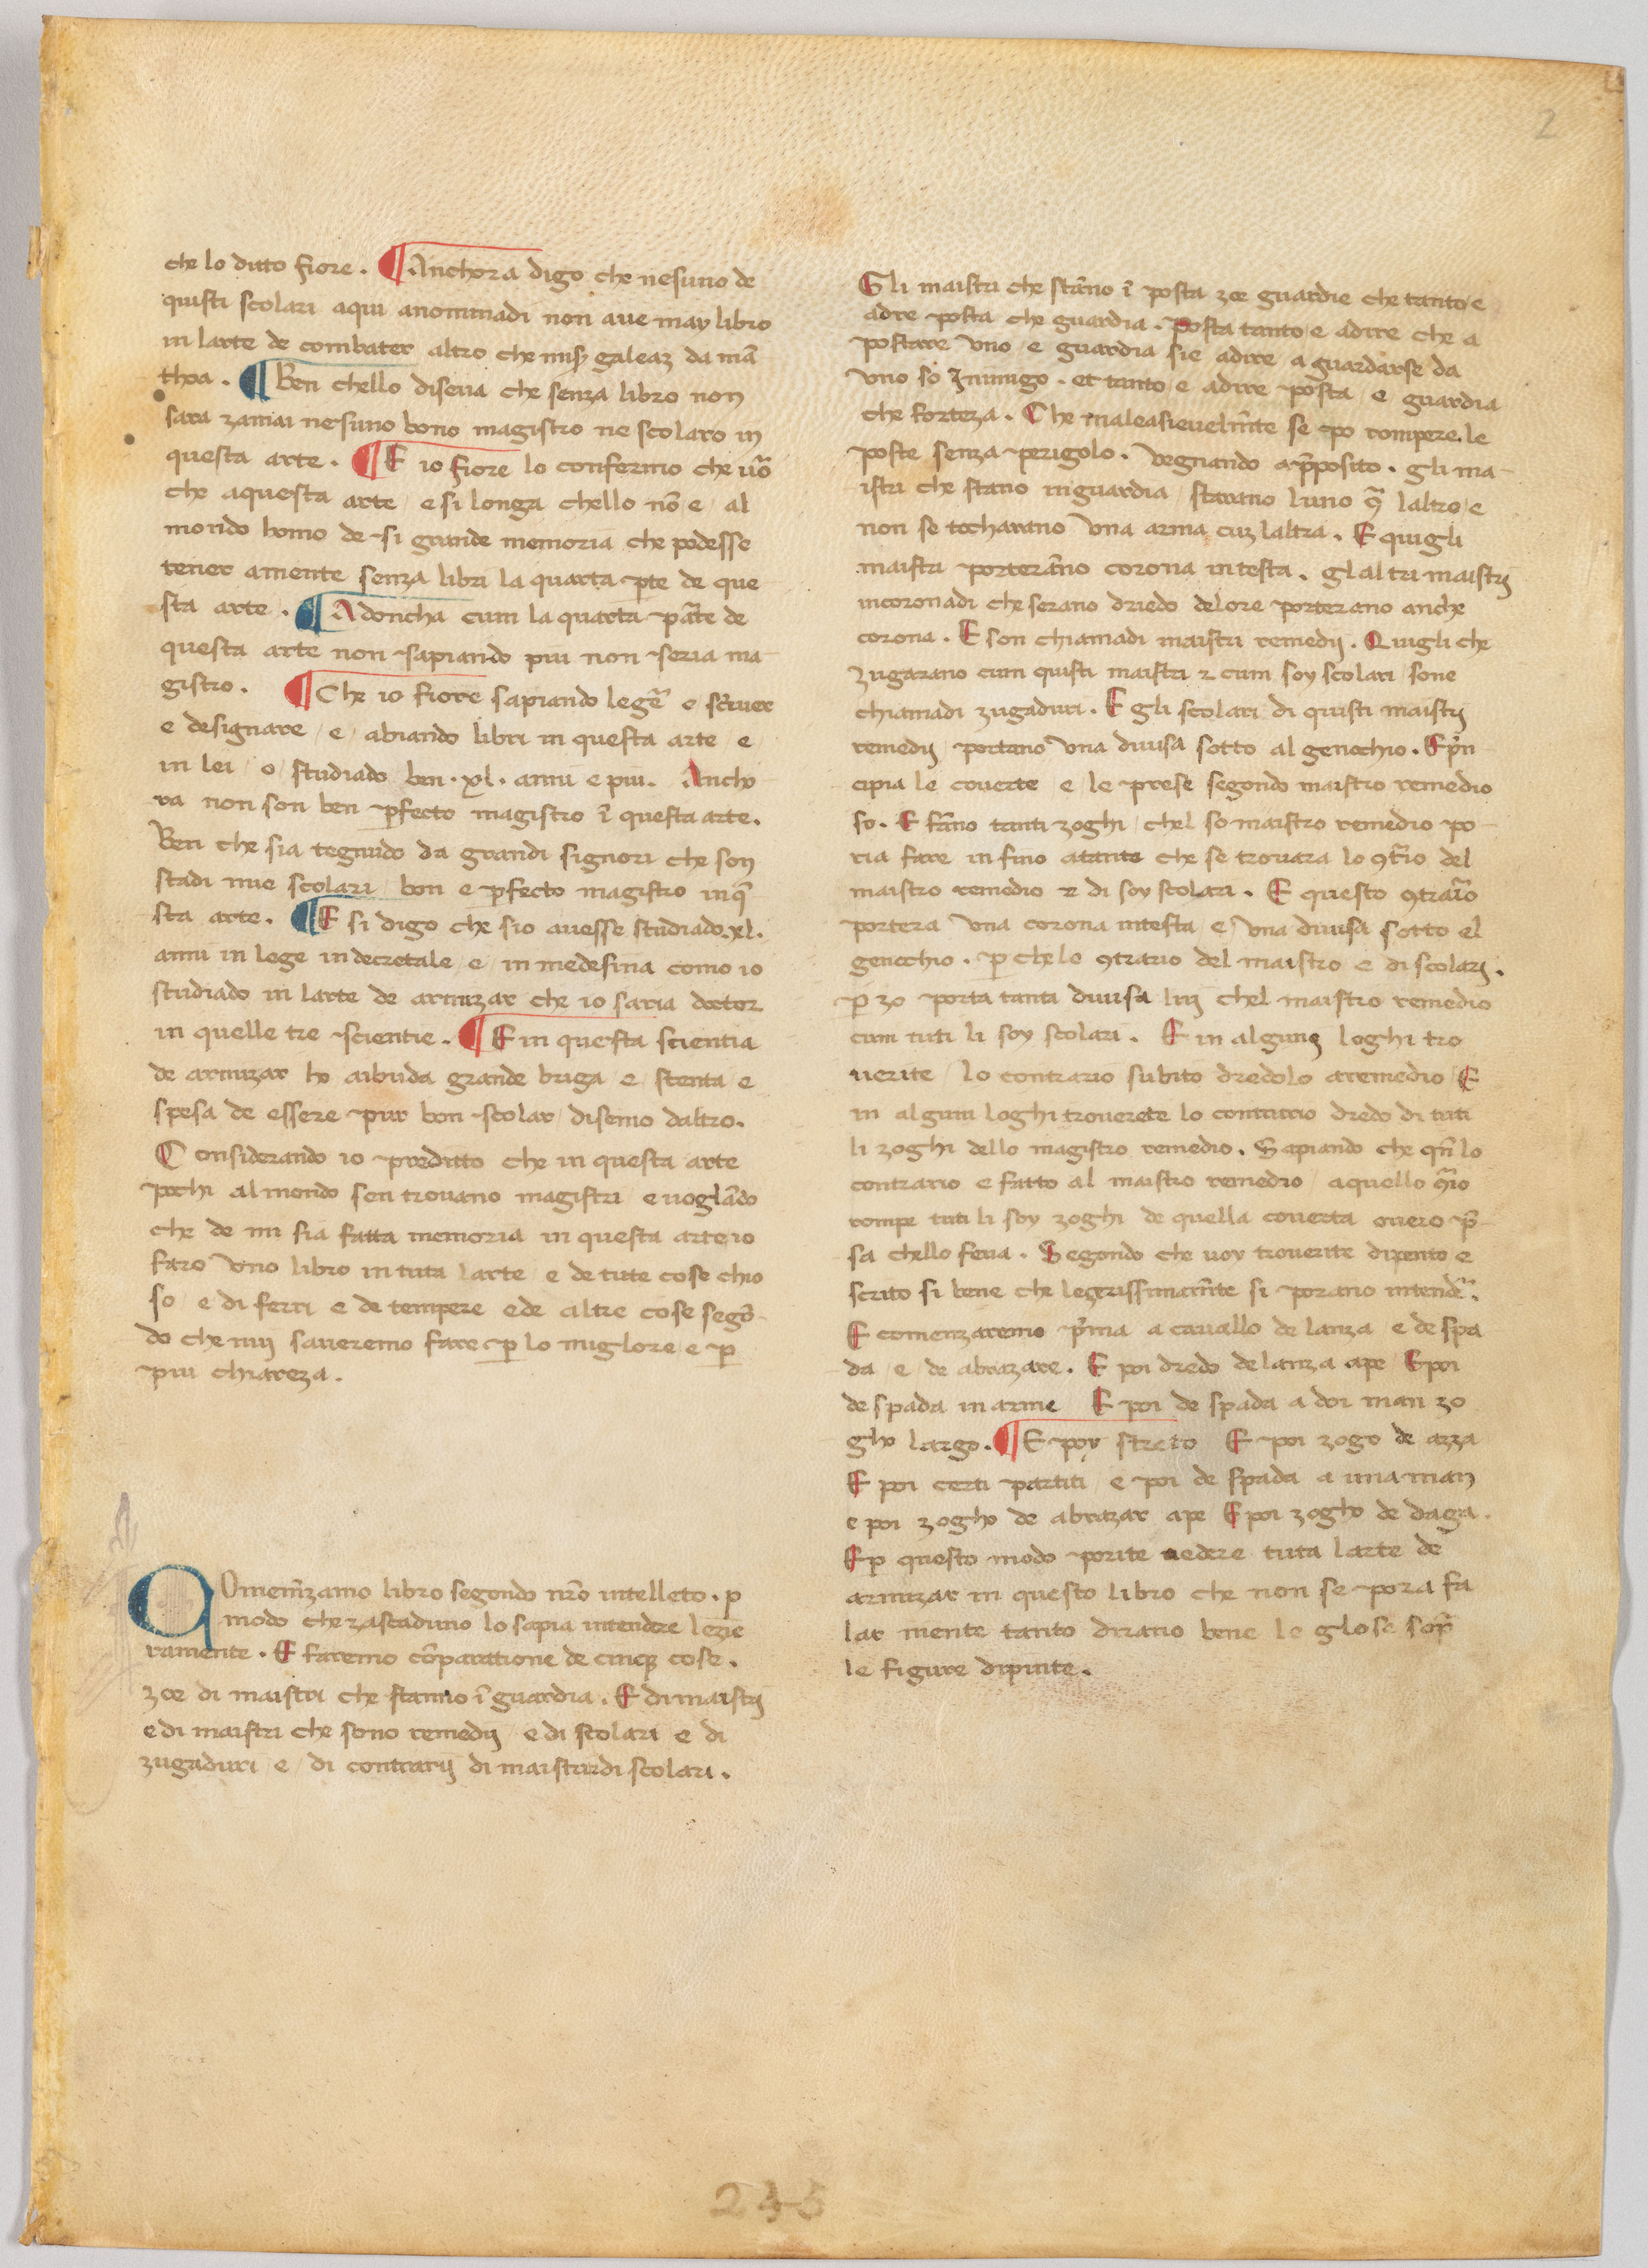 2
che lo ditto fiore. ¶ Anchora digo che nesuno de
quisti scolari aqui anominadi non aue may libro
in larte de combater altro che miss̃ galeaz da mã
thoa. ¶ Ben chello diseua che senza libro non
sara zamai nesuno bono magistro ne scolaro in
questa arte. ¶ E io fiore lo confermo che uõ
che aquesta arte / e si longa chello nõ e / al
mondo homo de si grande memoria che podesse
tener amente senza libri la quarta pte de que
sta arte. ¶ Adoncha cum la quarta pãte de
questa arte non sapiando piu non seria ma
gistro. ¶ Che io fiore sapiando legẽ e scriuer
e designare / e / abiando libri in questa arte / e
in lei / o / studiado ben .xl. anni e piu. Ancho
ra non son ben pfecto magistro ĩ questa arte.
Ben che sia tegnudo da grandi signori che son
stadi mie scolari / bon e pfecto magistro inq̃
sta arte. ¶ E si digo che sio auesse studiado .xl.
anni in lege in decretale / e / in medesina como io
studiado in larte de armizar che io saria doctor
in quelle tre scientie. ¶ E in questa scientia
de armizar ho aibuda grande briga e / stenta e
spesa de essere pur bon scolar / disemo daltro.
Considerando io preditto che in questa arte
pochi al mondo sen trouano magistri / e uoglãdo
che de mi sia fatta memoria in questa arte io
faro uno libro in tuta larte / e de tute cose chio
so / e di ferri e de tempere e de altre cose segõ
do che nuy saueremo fare p lo miglore / e p
piu chiareza.
Comenzamo libro segondo nr̃o intelleto. p
modo che zascaduno lo sapia intendere lezie
ramente. E faremo cõparatione de cinq cose.
zoe di maistri che stanno ĩ guardia. E di maistrȷ
e di maistri che sono remedij e di scolari e di
zugaduri / e / di contrarij di maistri e di scolari.
Gli maistri che stãno ĩ posta zoe guardie che tanto e
adire posta che guardia. Posta tanto e adire che a
postare uno e guardia sie adire a guardarse da
uno so Inimigo. et tanto e adire posta / e guardia
che forteza. Che maleasieuelmẽte se po rompere le
poste senza perigolo. Vegnando apposito. gli ma
istri che stano in guardia / starano luno 9ª laltro / e
non se tocharano una arma cuz laltra. E quigli
maistri porterãno corona in testa. glaltri maistrȷ
incoronadi che serano driedo de lore porterano anche
corona. E son chiamadi maistri remedij. Quigli che
zugarano cum quisti maistri ⁊ cum soy scolari / sone
chiamadi zugaduri. E gli scolari di quisti maistrȷ
remedij portano una diuisa sotto al genochio. E prin
cipia le couerte e le prese segondo maistro remedio
so. E fãno tanti zoghi / chel so maistro remedio po
ria fare in fino atante che se trouara lo 9tr̃io del
maistro remedio ⁊ di soy scolari. E questo 9trario
portera una corona in testa / e / una diuisa sotto el
genochio. p che lo 9trario del maistro e di scolari.
p zo porta tanta diuisa luy chel maistro remedio
cum tuti li soy scolari. E in alguni loghi tro
uerite / lo contrario subito dredo lo aremedio / E
in alguni loghi trouerete lo contrario dredo di tuti
li zoghi dello magistro remedio. Sapiando che qñ lo
contrario e fatto al maistro remedio / aquello 9r̃io
rompe tuti li soy zoghi de quella couerta ouero p̃
sa chello feua. Segondo che uoy trouerite dipento e
scrito si bene che legerissimamẽte si porano intendẽ.
E comenzaremo pr̃ima a cauallo de lanza e de spa
da / e / de abrazare. E poi dredo de lanza ape E poi
de spada in arme E poi de spada a doi man zo
gho largo. ¶ E poy streto E poi zogo de azza
E poi certi partiti / e poi de spada a una man
e poi zogho de abrazar ape E poi zogho de daga.
E p questo modo porite uedere tuta larte de
armizar in questo libro che non se pora fa
lar mente tanto dirano bene le glose sopr̃
le figure dipinte.
245